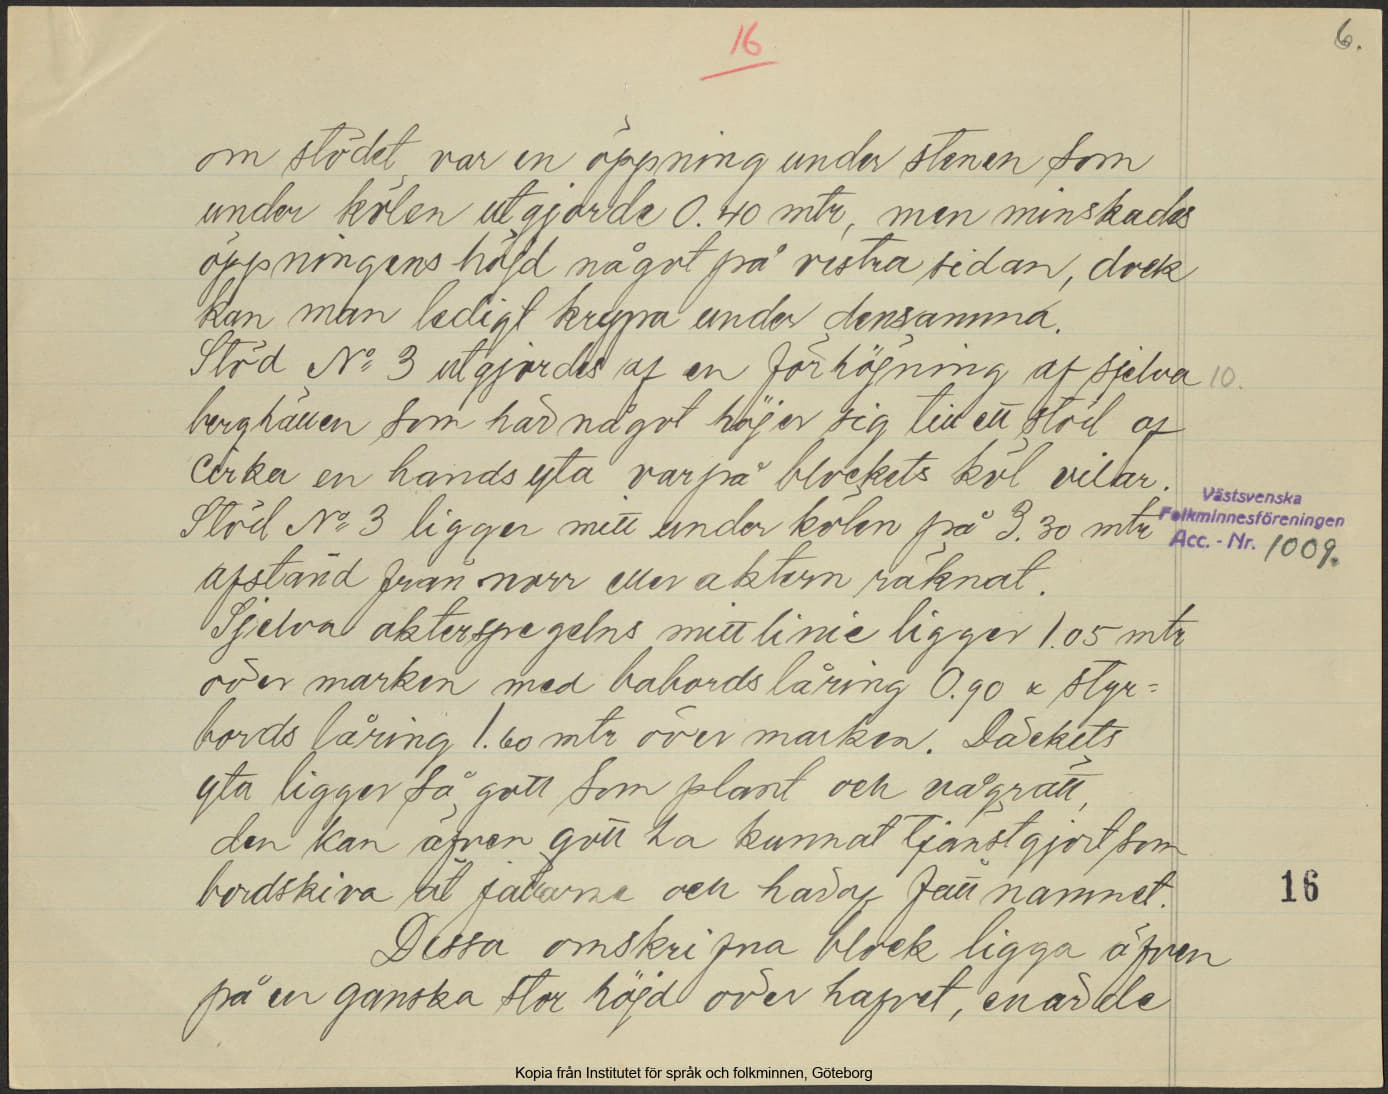 16
6.
om stödet, var en öppning under stenen som
under kölen utgjorde 0.40 mtr, men minskades
öppningens höjd något på vestra sidan, dock
kan man ledigt krypa under densamma.
Stöd No 3 utgjordes af en förhöjning af sjelva
10.
berghällen som här något höjer sig till ett stöd af
cirka en hands yta varpå blockets köl vilar.
Stöd No 3 ligger mitt under kölen på 3.30 mtr
Västsvenska
Folkminnesföreningen
Acc. - Nr. 1009.
afstånd från norr eller aktern räknat.
Sjelva akterspegelns mittlinie ligger 1.05 mtr
över marken med babords låring 0.90 & styr=
bords låring 1.60 mtr över marken. Däckets
yta ligger så gott som plant och vågrätt,
den kan äfven gott ha kunnat tjänstgjort som
bordskiva åt jättarne och häraf fått namnet.
16
Dessa omskrifna block ligga äfven
på en ganska stor höjd över hafvet, enär de
Kopia från Institutet för språk och folkminnen, Göteborg